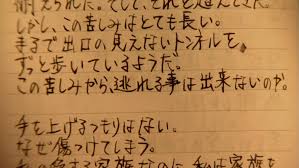 耐えられた。そして、それを超えてきた。
しかし、この苦しみはとても長い。
まるで出口の見えないトンネルを
ずっと歩いているようだ。
この苦しみから、逃れる事は出来ないのか。
手を上げるつもりはない。
なぜ傷つけてしまう。
家族なのに、私は家族を